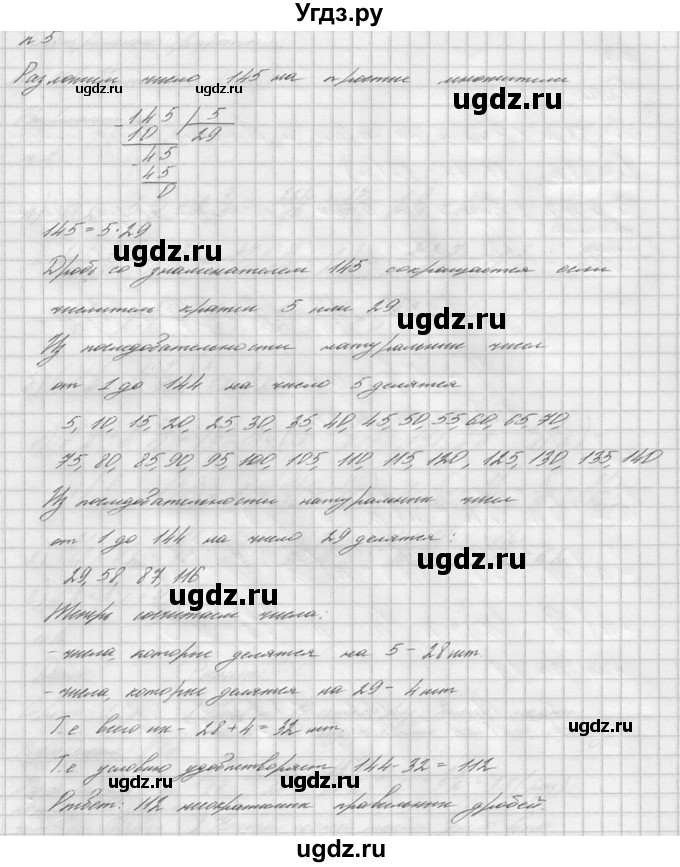 Угдз.ру
n 5
Разложим число 145 на простые множители
ugdz.ru ugdz.ru ugdz.ru
- 145 | 5
10 29
- 45
45
0
145 = 5 · 29
ugdz.ru
Дробь со знаменателем 145 сокращается если
числитель кратен 5 или 29
ugdz.ru
Из последовательности натуральных чисел
от 1 до 144 на число 5 делятся
5, 10, 15, 20, 25, 30, 35, 40, 45, 50, 55, 60, 65, 70,
75, 80, 85, 90, 95, 100, 105, 110, 115, 120, 125, 130, 135, 140
Из последовательности натуральных чисел
от 1 до 144 на число 29 делятся:
ugdz.ru
29, 58, 87, 116
ugdz.ru
Теперь сосчитаем числа:
- числа, которые делятся на 5 - 28 шт.
- числа, которые делятся на 29 - 4 шт
Т.е всего их - 28 + 4 = 32 шт.
ugdz.ru
Т.е условию удовлетворяет 144 - 32 = 112
ugdz.ru
Ответ: 112 несократимых правильных дробей.
ugdz.ru
ugdz.ru